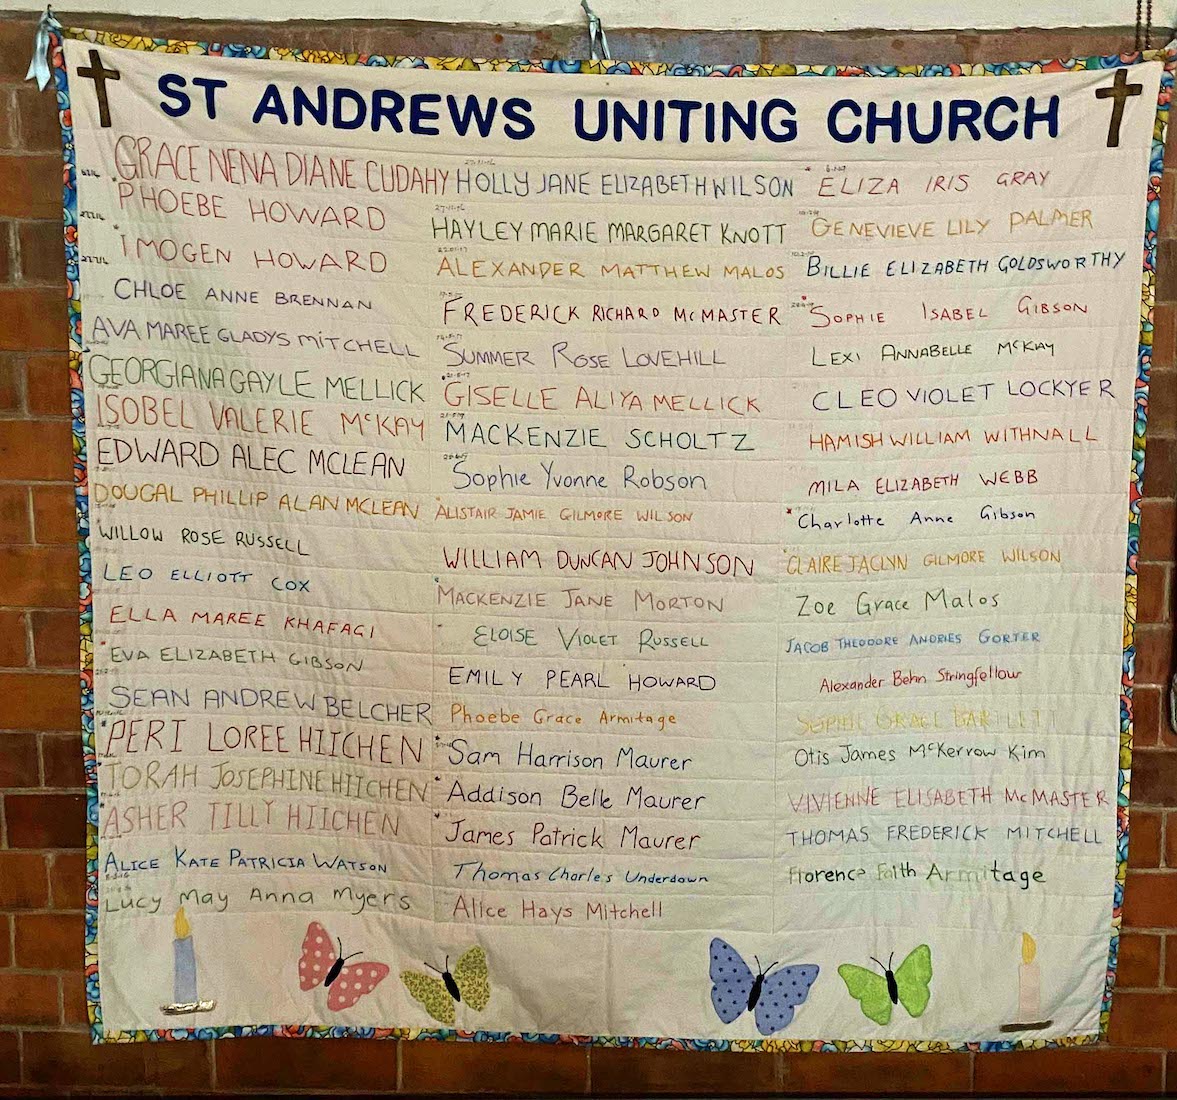 ST ANDREWS UNITING CHURCH
GRACE NENA DIANE CUDAHY
PHOEBE HOWARD
IMOGEN HOWARD
CHLOE ANNE BRENNAN
AVA MAREE GLADYS MITCHELL
GEORGIANA GAYLE MELLICK
ISOBEL VALERIE McKAY
EDWARD ALEC MCLEAN
DOUGAL PHILLIP ALAN MCLEAN
WILLOW ROSE RUSSELL
LEO ELLIOTT COX
ELLA MAREE KHAFAGI
EVA ELIZABETH GIBSON
SEAN ANDREW BELCHER
PERI LOREE HIICHEN
TORAH JOSEPHINE HIICHEN
ASHER TILLY HIICHEN
ALICE KATE PATRICIA WATSON
Lucy May Anna Myers
HOLLY JANE ELIZABETH WILSON
27-11-16
HAYLEY MARIE MARGARET KNOTT
ALEXANDER MATTHEW MALOS
FREDERICK RICHARD McMASTER
SUMMER ROSE LOVEHILL
21-5-17
GISELLE ALIYA MELLICK
MACKENZIE SCHOLTZ
Sophie Yvonne Robson
ALISTAIR JAMIE GILMORE WILSON
WILLIAM DUNCAN JOHNSON
MACKENZIE JANE MORTON
ELOISE VIOLET RUSSELL
EMILY PEARL HOWARD
Phoebe Grace Armitage
Sam Harrison Maurer
Addison Belle Maurer
James Patrick Maurer
Thomas Charles Underdown
Alice Hays Mitchell
ELIZA IRIS GRAY
GENEVIEVE LILY PALMER
BILLIE ELIZABETH GOLDSWORTHY
SOPHIE ISABEL GIBSON
LEXI ANNABELLE McKAY
CLEO VIOLET LOCKYER
HAMISH WILLIAM WITHNALL
MILA ELIZABETH WEBB
Charlotte Anne Gibson
CLAIRE JACLYN GILMORE WILSON
Zoe Grace Malos
JACOB THEODORE ANDRIES GORTER
Alexander Behn Stringfellow
SOPHIE GRACE BARTLETT
Otis James McKerrow Kim
VIVIENNE ELISABETH McMASTER
THOMAS FREDERICK MITCHELL
Florence Faith Armitage